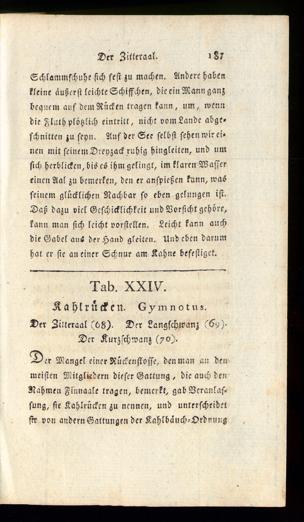 Der Zitteraal. 187
Schlammschuhe sich fest zu machen. Andere haben
kleine äußerst leichte Schiffchen, die ein Mann ganz
bequem auf dem Rücken tragen kann, um, wenn
die Fluth plözlich eintritt, nicht vom Lande abge-
schnitten zu seyn. Auf der See selbst sehen wir ei-
nen mit seinem Dreyzack ruhig hingleiten, und um
sich herblicken, bis es ihm gelingt, im klaren Wasser
einen Aal zu bemerken, den er anspießen kann, was
seinem glücklichen Nachbar so eben gelungen ist.
Daß dazu viel Geschicklichkeit und Vorsicht gehöre,
kann man sich leicht vorstellen. Leicht kann auch
die Gabel aus der Hand gleiten. Und eben darum
hat er sie an einer Schnur am Kahne befestiget.
Tab. XXIV.
Kahlrücken. Gymnotus.
Der Zitteraal (68). Der Langschwanz (69).
Der Kurzschwanz (70).
Der Mangel einer Rückenflosse, den man an den
meisten Mitgliedern dieser Gattung, die auch den
Nahmen Finnaale tragen, bemerkt, gab Veranlas-
sung, sie Kahlrücken zu nennen, und unterscheidet
sie von andern Gattungen der Kahlbäuch-Ordnung